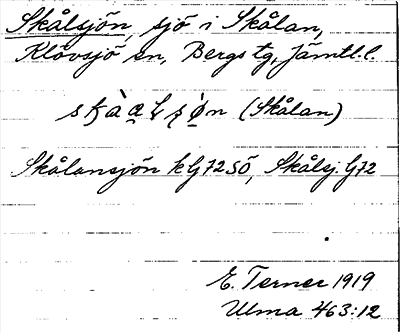 Skålsjön, sjö i Skålan,
Klövsjö sn, Bergs tg, Jämtl. l.
(Skålan)
Skålansjön k G72SÖ, Skålsj. G72
E. Terner 1919
Ulma 463:12